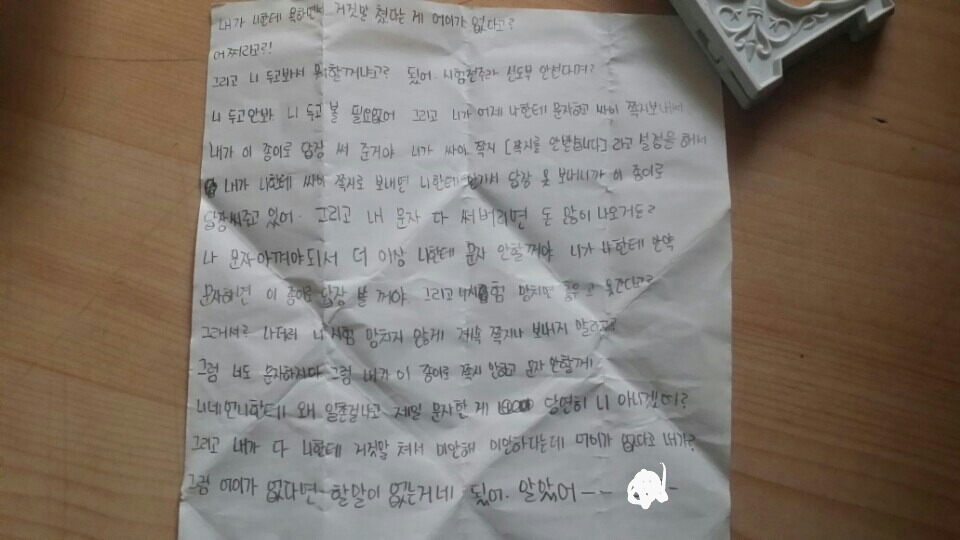 내가 니한테 욕하면서 거짓말 쳤다는 게 어이가 없다고?
어쩌라고?!
그리고 니 두고봐서 뭐할꺼냐고? 됬어. 시험전주라 선도부 안선다며?
니 두고안봐 니 두고 볼 필요없어 그리고 니가 어제 나한테 문자하고 싸이 쪽지보내서
내가 이 종이로 답장 써 준거야 니가 싸이 쪽지 [쪽지를 안받습니다] 라고 설정을 해서
내가 니한테 싸이 쪽지로 보내면 니한테 답장 못 보내니까 이 종이로
답장써주고 있어. 그리고 내 문자 다 써버리면 돈 많이 나오거든?
나 문자아껴야되서 더 이상 니한테 문자 안할꺼야 니가 나한테 만약
문자하면 이 종이로 답장 쓸 꺼야 그리고 니시험 망치면 좋고 웃긴다고?
그래서 나더러 니 시험 망치지 않게 계속 쪽지나 보내지 말라고?
그럼 너도 문자하지마 그럼 내가 이 종이로 쪽지 안하고 문자 안할께
니네언니한테 왜 일촌걸냐고 제일 문자한 게 당연히 니 아니겠어?
그리고 내가 다 니한테 거짓말 쳐서 미안해 미안하다는데 어이가 없다고 내가?
그럼 어이가 없다면 할말이 없는거네 됬어. 알았어 ㅡㅡ